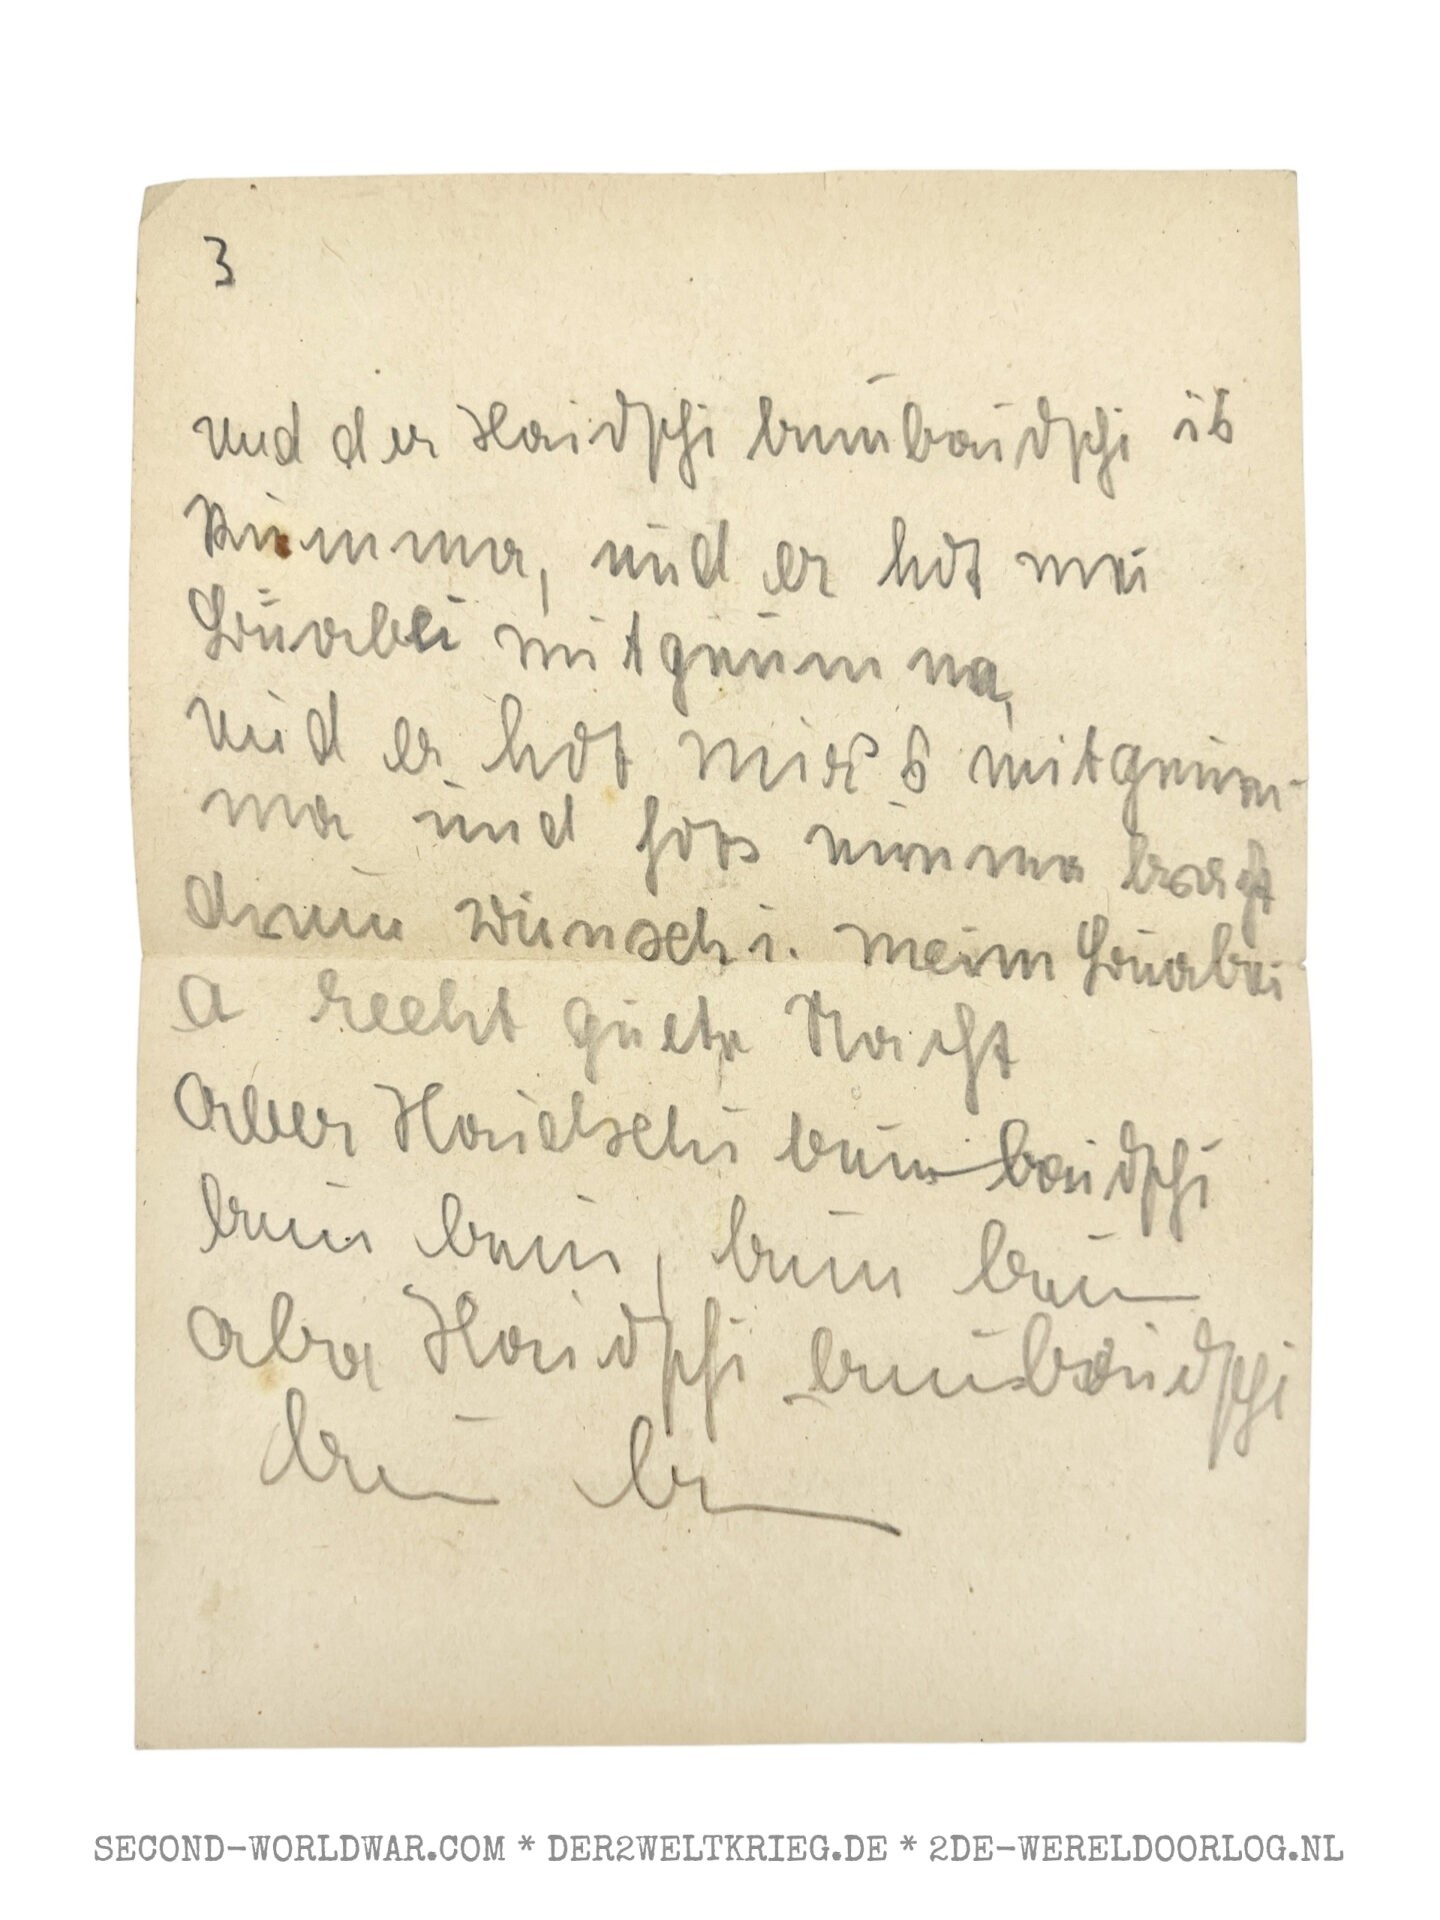 3
und der Haidschi bumbaidschi is
kumma, und er hot mei
Büabei mitgnumma,
und er hot mirs mitgnum
ma und hots nimma bracht
drum wünsch i. meim Büabei
a recht guete Nacht
aber Haidschi bumbaidschi
bum bum, bum bum
aba Haidschi bumbaidschi
bum bum
SECOND-WORLDWAR.COM * DER2WELTKRIEG.DE * 2DE-WERELDOORLOG.NL